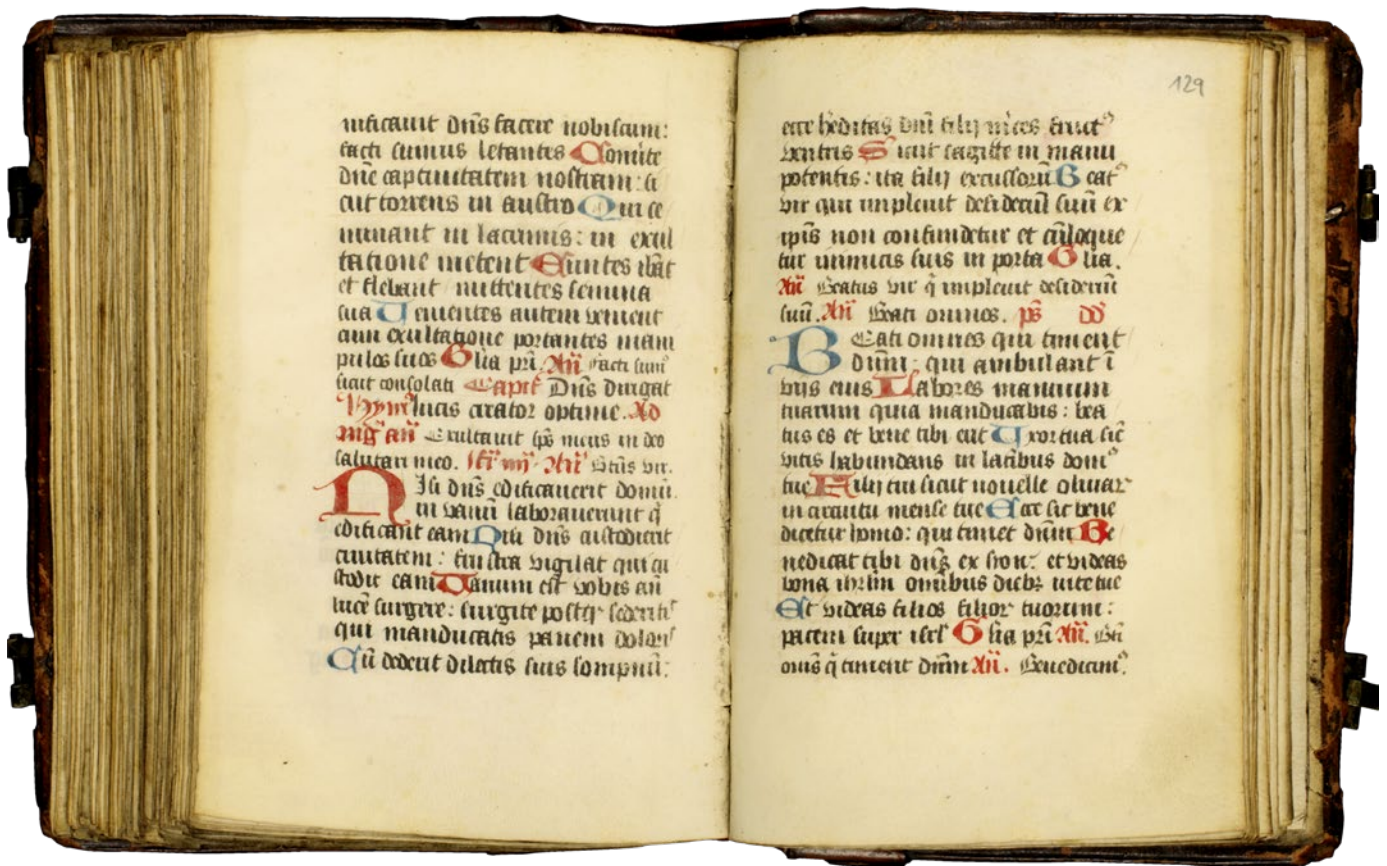 nificauit dn̄s facere nobiscum:
facti sumus letantes Conu̇te
dn̄e captiuitatem nostram: si
cut torrens in austro Qui se
minant in lacrimis: in exul
tatione metent Euntes ibāt
et flebant mittentes semina
sua Uenientes autem venient
cum exultatione portantes mani
pulos suos Glīa pr̄i. Añ Facti sumꝰ
sicut consolati Capitl̄ Dn̄s dirigat
Hymꝰ lucis creator optime. Ad
mḡ añ Exultauit sp̄s meus in deo
salutari meo. Añ Btūs vir.
Nisi dn̄s edificauerit domū.
in vanū laborauerunt q̄
edificant eam Nisi dn̄s custodierit
ciuitatem: frustra vigilat qui cu
stodit eam Uanum est vobis an̄
lucē surgere: surgite postq̄ sederitꝭ
qui manducatis panem dolorꝭ
Cū dederit dilectis suis sompnū:
129
ecce h̄editas dn̄i filij m̄ces fructꝰ
ventris Sicut sagitte in manu
potentis: ita filij excussorū Beatꝰ
vir qui impleuit desideriū suū ex
ipīs non confundetur et cū loque
tur inimicis suis in porta Glīa.
Añ Beatus vir q̄ impleuit desideriū
suū. Añ Beati omnes. ps̄ dd̄
Beati omnes qui timent
dn̄m: qui ambulant ī
viis eius Labores manuum
tuarum quia manducabis: bea
tus es et bene tibi erit Uxor tua sic̄
vitis habundans in lat̄ibus domꝰ
tue Filij tui sicut nouelle oliuarꝝ
in circuitu mense tue Ecce sic bene
dicetur homo: qui timet dn̄m Be
nedicat tibi dn̄s ex syon: et videas
bona ihrl̄m omībus diebꝫ uite tue
Et videas filios filiorꝝ tuorum:
pacem super isrl̄ Glīa pr̄i Añ. Bt̄i
om̄s q̄ timent dn̄m Añ. Benedicimꝰ.